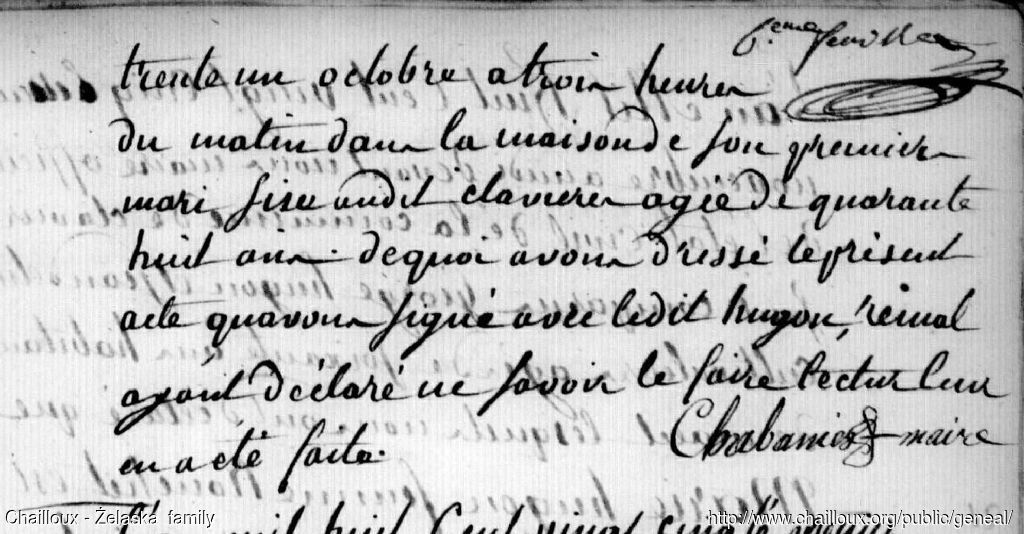 6.eme feuillet
trente un octobre a trois heures
du matin dans la maison de son premier
mari sise audit clavieres agée de quarante
huit ans. de quoi avons dressé le présent
acte qu'avons signé avec ledit hugon, reinal
ayant déclaré ne savoir le faire lecture leur
en acté faite.
Chabanier maire
mil huit Cent vingt cinq le
Chailloux - Żelaska family
http://www.chailloux.org/public/geneal/